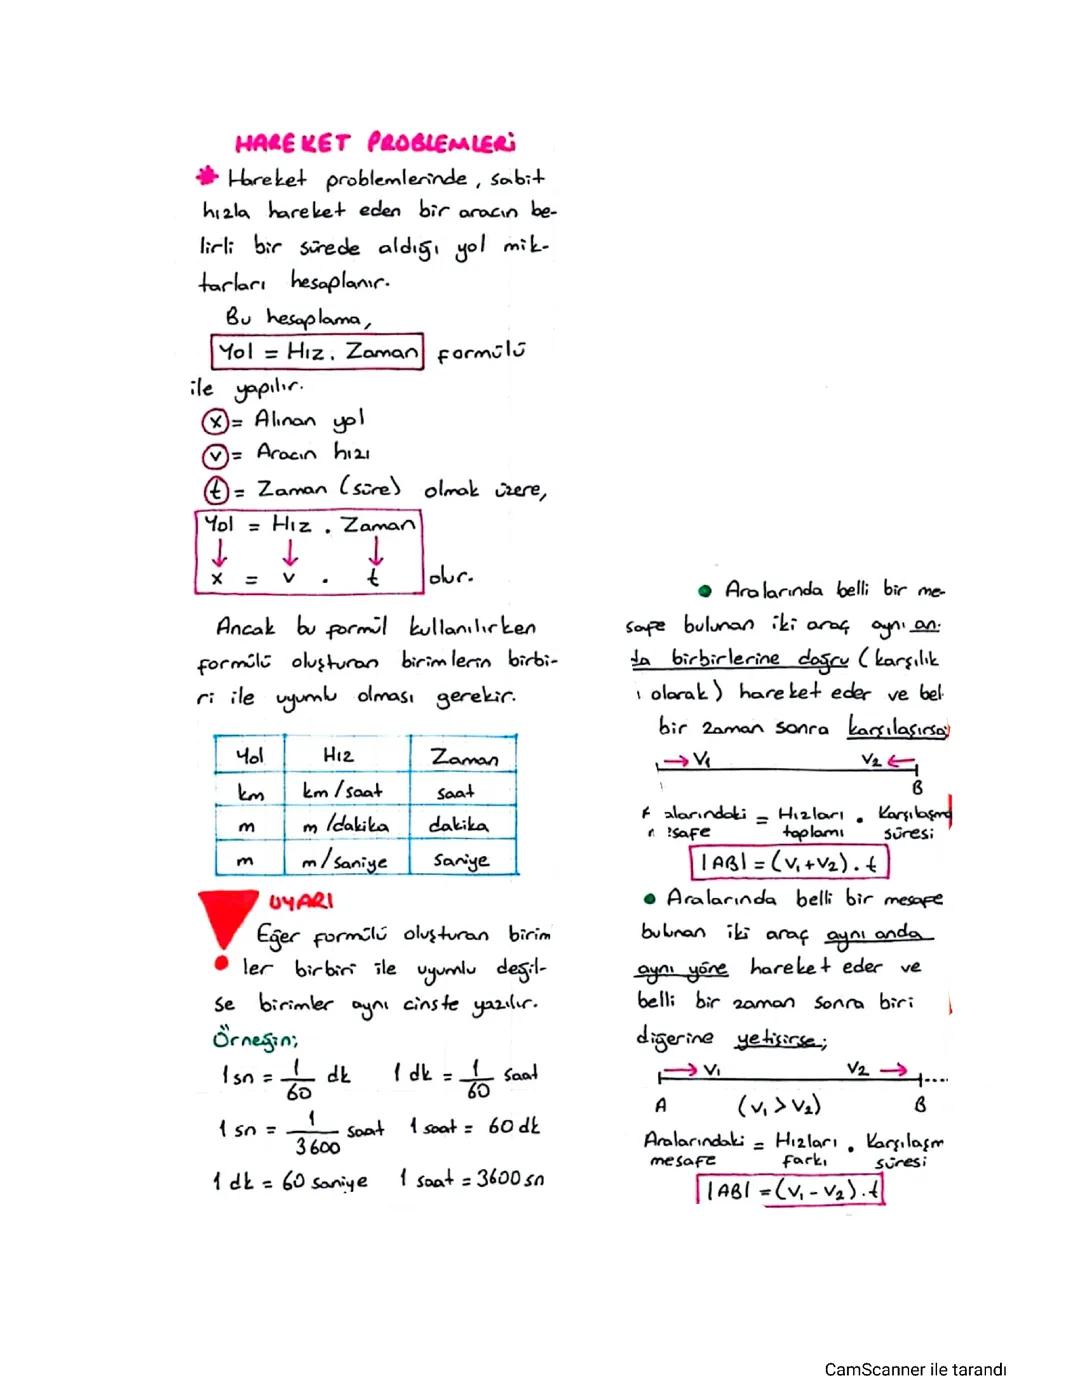 HAREKET PROBLEMLERİ
* Hareket problemlerinde, sabit
hızla hareket eden bir aracın be-
lirli bir sürede aldığı yol mik-
tarları hesaplanır.
Bu hesaplama,
Yol = Hız . Zaman formülü
ile yapılır.
x = Alınan yol
v = Aracın hızı
t = Zaman (süre) olmak üzere,
Yol = Hız . Zaman
↓ ↓ ↓
x = v . t olur.
Ancak bu formül kullanılırken
formülü oluşturan birimlerin birbi-
ri ile uyumlu olması gerekir.
Yol Hız Zaman
km km/saat saat
m m/dakika dakika
m m/saniye saniye
! UYARI
Eğer formülü oluşturan birim
ler birbiri ile uyumlu değil-
se birimler aynı cinste yazılır.
Örneğin;
1 sn = 1/60 dk 1 dk = 1/60 saat
1 sn = 1/3600 saat 1 saat = 60 dk
1 dk = 60 saniye 1 saat = 3600 sn
• Aralarında belli bir me-
safe bulunan iki araç aynı an-
da birbirlerine doğru (karşılık
ı olarak) hareket eder ve bel
bir zaman sonra karşılaşırsa;
→ V₁ V₂ ←
B
alarındaki = Hızları . Karşılaşma
safe toplamı süresi
|AB| = (V₁ + V₂) . t
• Aralarında belli bir mesafe
bulunan iki araç aynı anda
aynı yöne hareket eder ve
belli bir zaman sonra biri
diğerine yetişirse;
→ V₁ V₂ →
A (V₁ > V₂) B
Aralarındaki = Hızları . Karşılaşm
mesafe farkı süresi
|AB| = (V₁ - V₂) . t
CamScanner ile tarandı